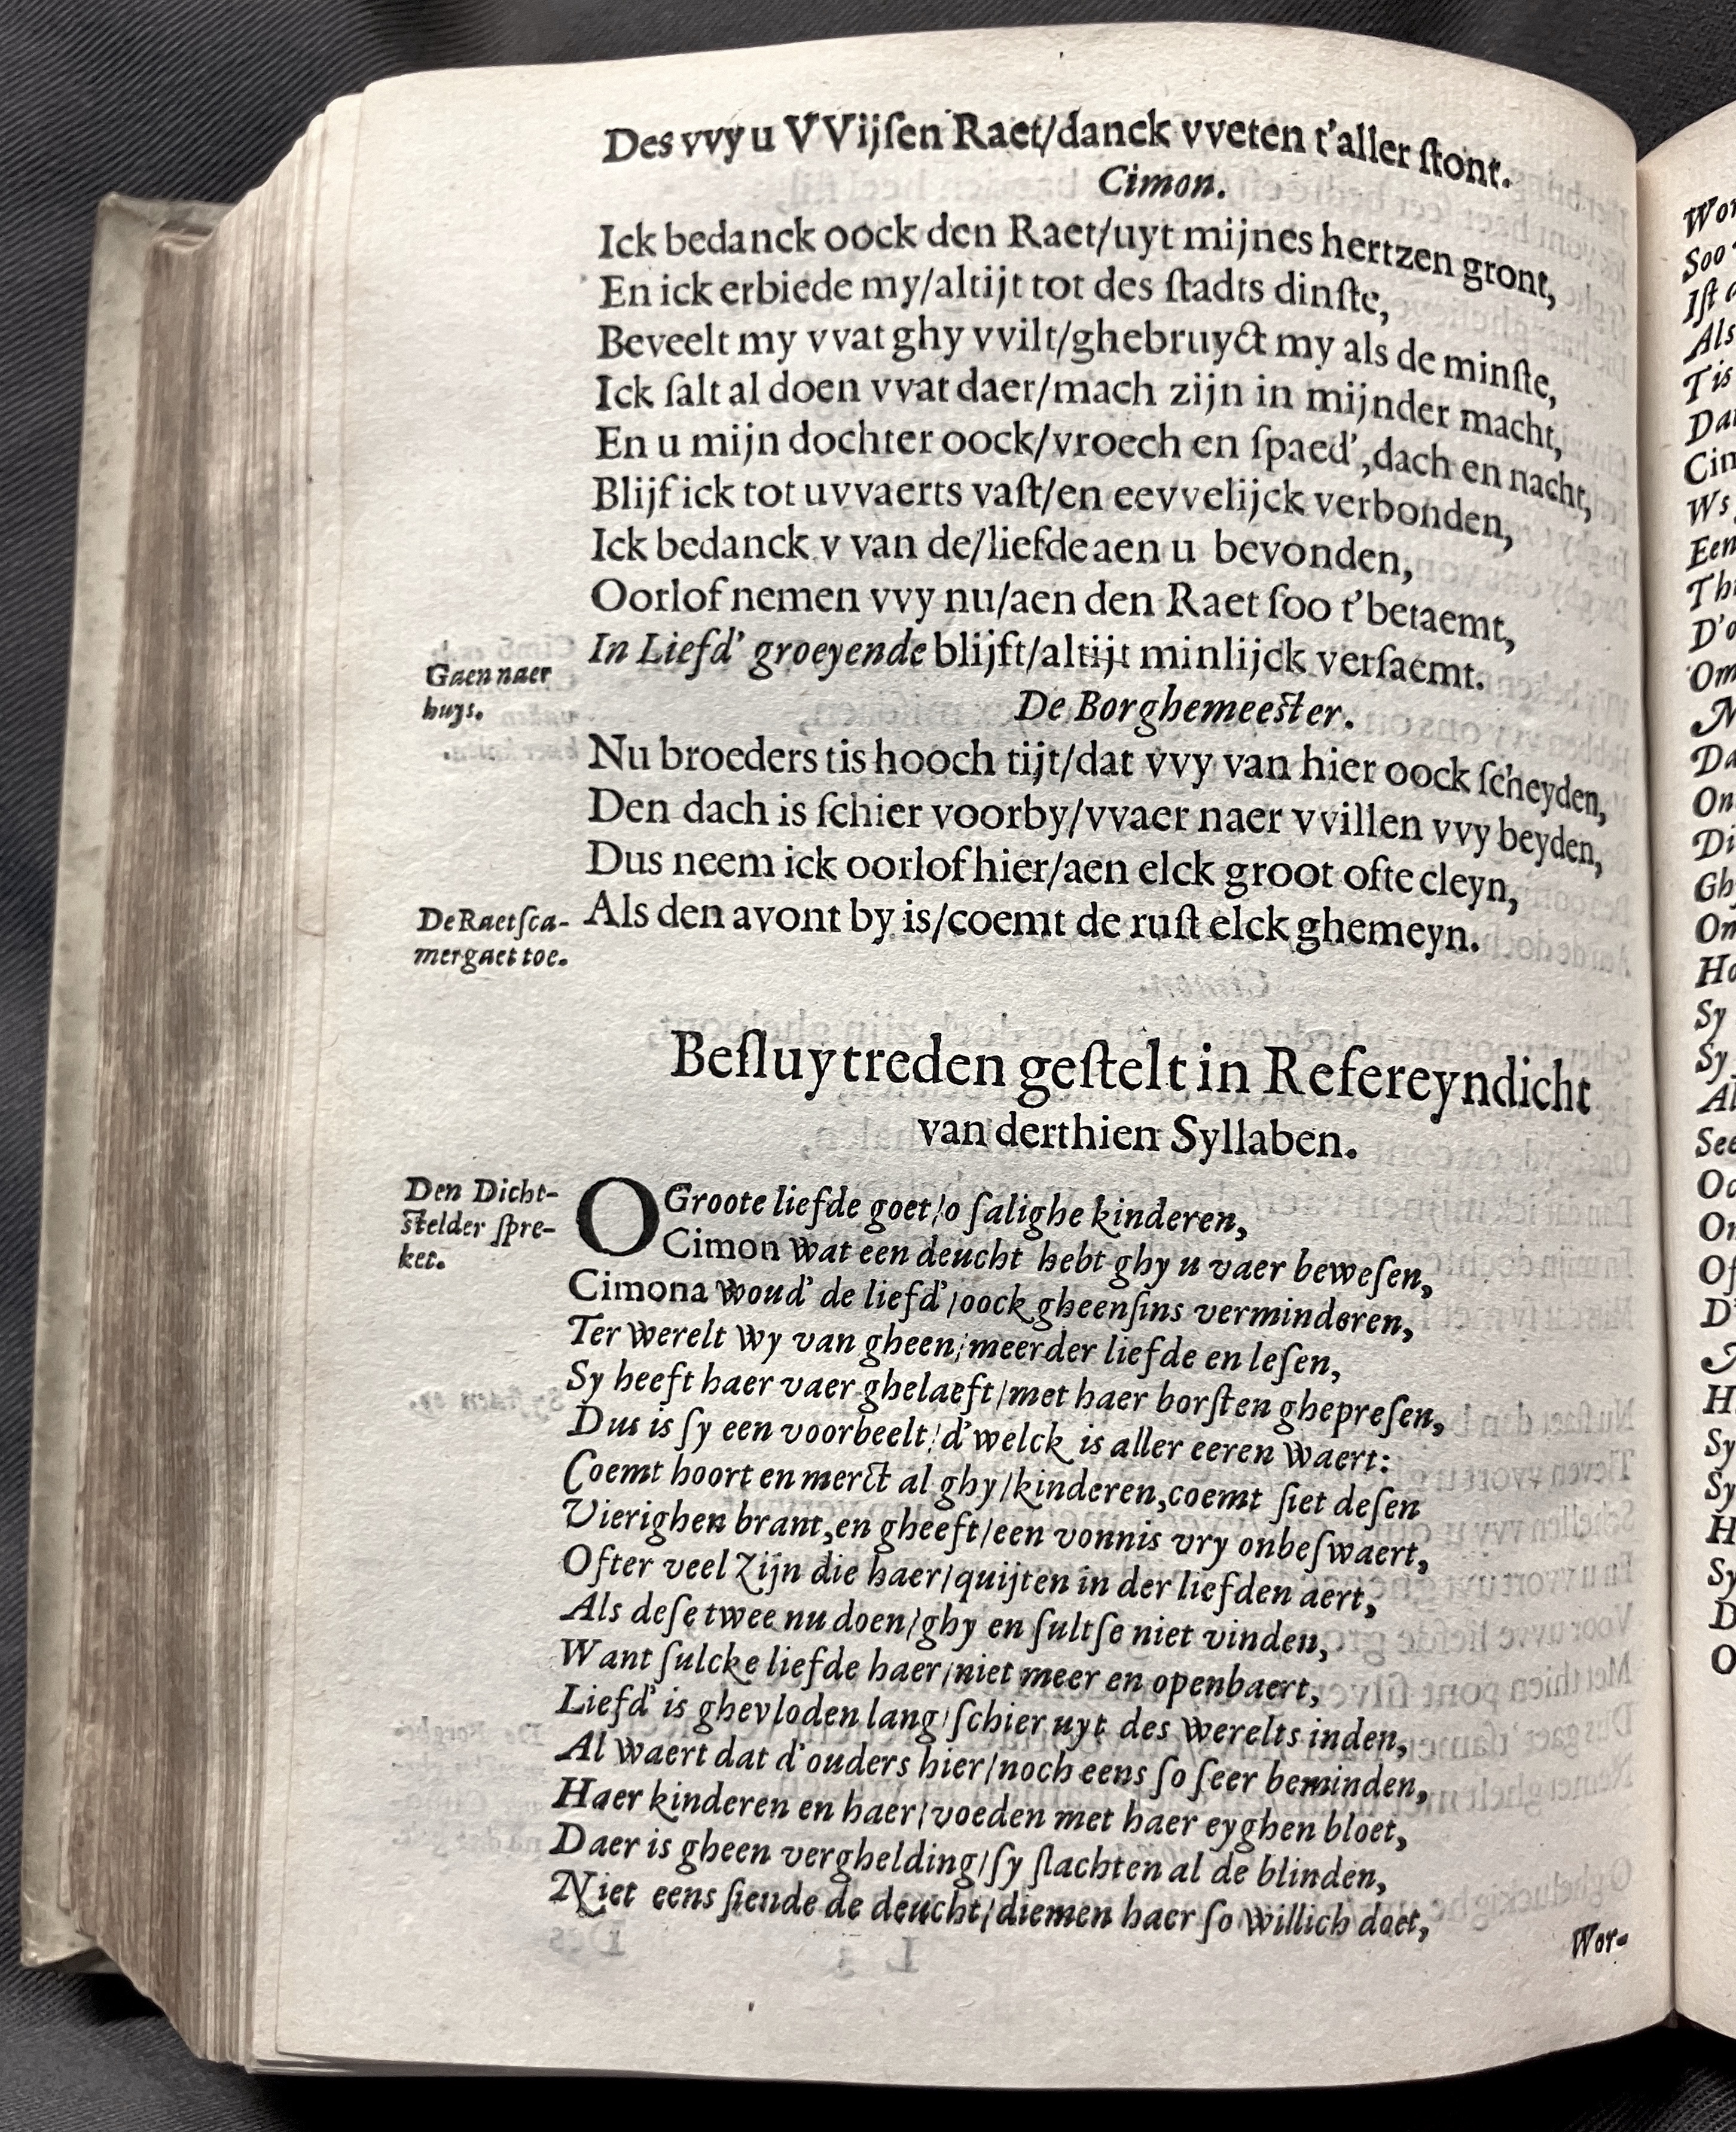 Des vvy u VVijſen Raet/danck vveten t'aller ſtont.
Cimon.
Ick bedanck oock den Raet/uyt mijnes hertzen gront,
En ick erbiede my/altijt tot des ſtadts dinſte,
Beveelt my vvat ghy vvilt/ghebruyct my als de minſte,
Ick ſalt al doen vvat daer/mach zijn in mijnder macht,
En u mijn dochter oock/vroech en ſpaed',dach en nacht,
Blijf ick tot uvvaerts vaſt/en eevvelijck verbonden,
Ick bedanck v van de/liefde aen u bevonden,
Oorlof nemen vvy nu/aen den Raet ſoo t'betaemt,
In Liefd' groeyende blijft/altijt minlijck verſaemt.
Gaen naer
huys.
De Borghemeeſter.
Nu broeders tis hooch tijt/dat vvy van hier oock ſcheyden,
Den dach is ſchier voorby/vvaer naer vvillen vvy beyden,
Dus neem ick oorlof hier/aen elck groot ofte cleyn,
Als den avont by is/coemt de ruſt elck ghemeyn.
De Raetſca-
mer gaet toe.
Beſluytreden geſtelt in Refereyndicht
van derthien Syllaben.
Den Dicht-
ſtelder ſpre-
ket.
O Groote liefde goet/o ſalighe kinderen,
Cimon wat een deucht hebt ghy u vaer beweſen,
Cimona woud' de liefd'/oock gheenſins verminderen,
Ter werelt wy van gheen/meerder liefde en leſen,
Sy heeft haer vaer ghelaeft/met haer borſten ghepreſen,
Dus is ſy een voorbeelt/d'welck is aller eeren waert:
Coemt hoort en merct al ghy/kinderen,coemt ſiet deſen
Vierighen brant,en gheeft/een vonnis vry onbeſwaert,
Ofter veel zijn die haer/quijten in der liefden aert,
Als deſe twee nu doen/ghy en ſultſe niet vinden,
Want ſulcke liefde haer/niet meer en openbaert,
Liefd' is ghevloden lang/ſchier uyt des werelts inden,
Al waert dat d'ouders hier/noch eens ſo ſeer beminden,
Haer kinderen en haer/voeden met haer eyghen bloet,
Daer is gheen verghelding/ſy ſlachten al de blinden,
Niet eens ſiende de deucht/diemen haer ſo willich doet,
Wor-